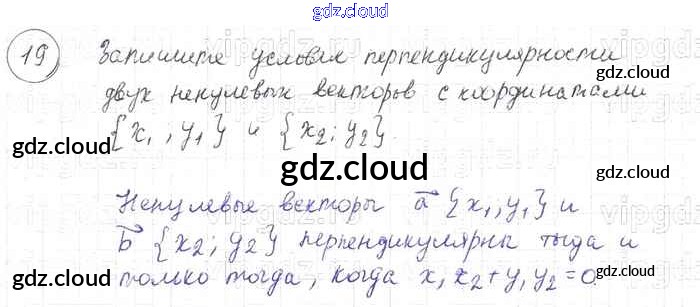 gdz.cloud
19 Запишите условия перпендикулярности
двух ненулевых векторов с координатами
{x₁; y₁} и {x₂; y₂}.
gdz.cloud
gdz.cloud
gdz.cloud
gdz.cloud
Ненулевые векторы a⃗ {x₁; y₁} и
b⃗ {x₂; y₂} перпендикулярны тогда и
только тогда, когда x₁x₂ + y₁y₂ = 0.
gdz.cloud
gdz.cloud